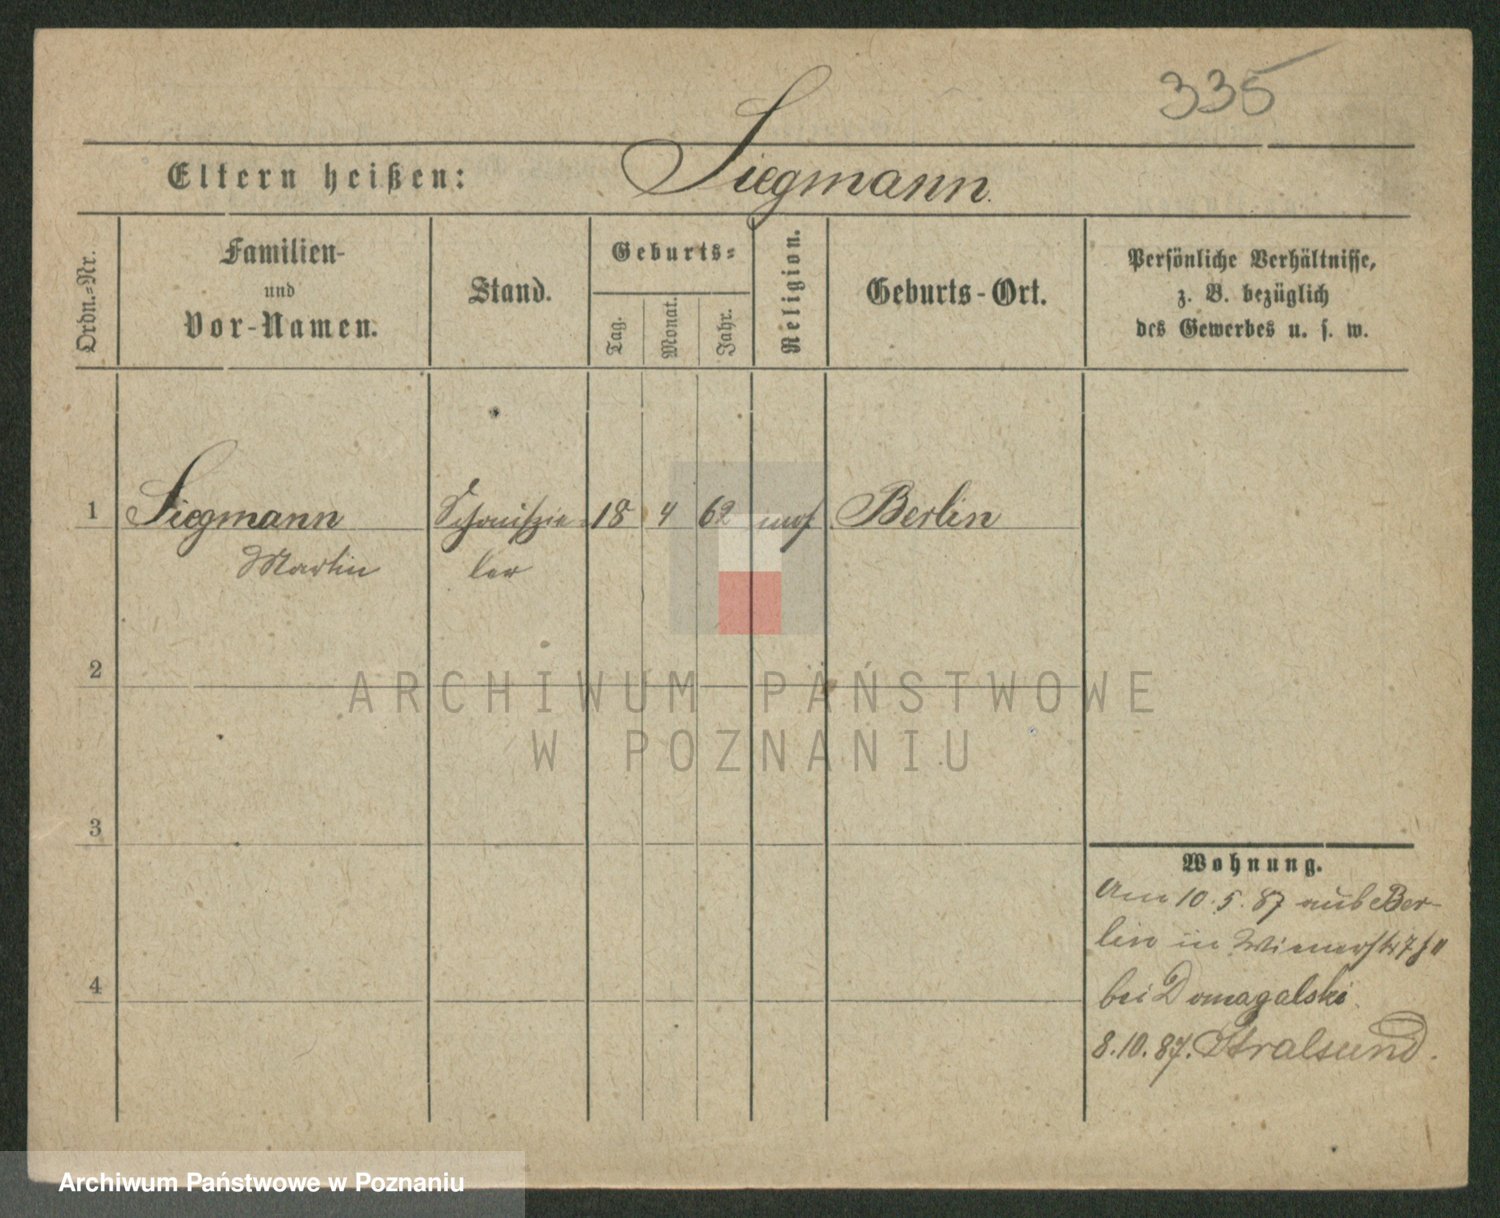 335
Eltern heißen: Siegmann.
Ordn.-Nr.
Familien-
und
Vor-Namen.
Stand.
Geburts-
Tag.
Monat.
Jahr.
Religion.
Geburts-Ort.
Persönliche Verhältnisse,
z. B. bezüglich
des Gewerbes u. s. w.
1 Siegmann Schauspie- 18 4 62 Berlin
Martin ler
2
ARCHIWUM PAŃSTWOWE
W POZNANIU
3
4
Wohnung.
Am 10.5.87 aus Ber-
lin in Wienerstr 7
bei Domagalski
8.10.87. Stralsund.
Archiwum Państwowe w Poznaniu